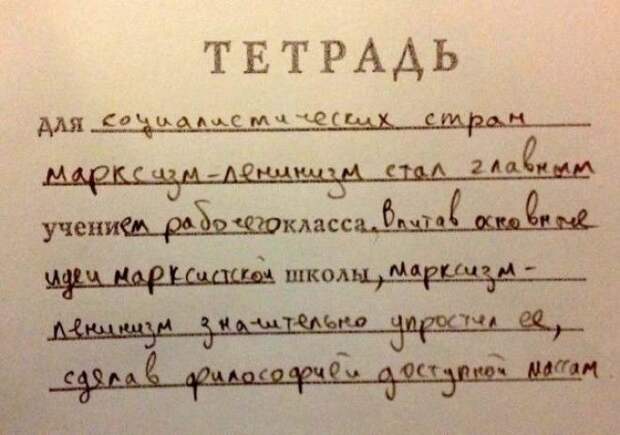 ТЕТРАДЬ
для социалистических стран
марксизм-ленинизм стал главным
учением рабочего класса. Впитав основные
идеи марксистской школы, марксизм-
ленинизм значительно упростил ее,
сделав философией доступной массам